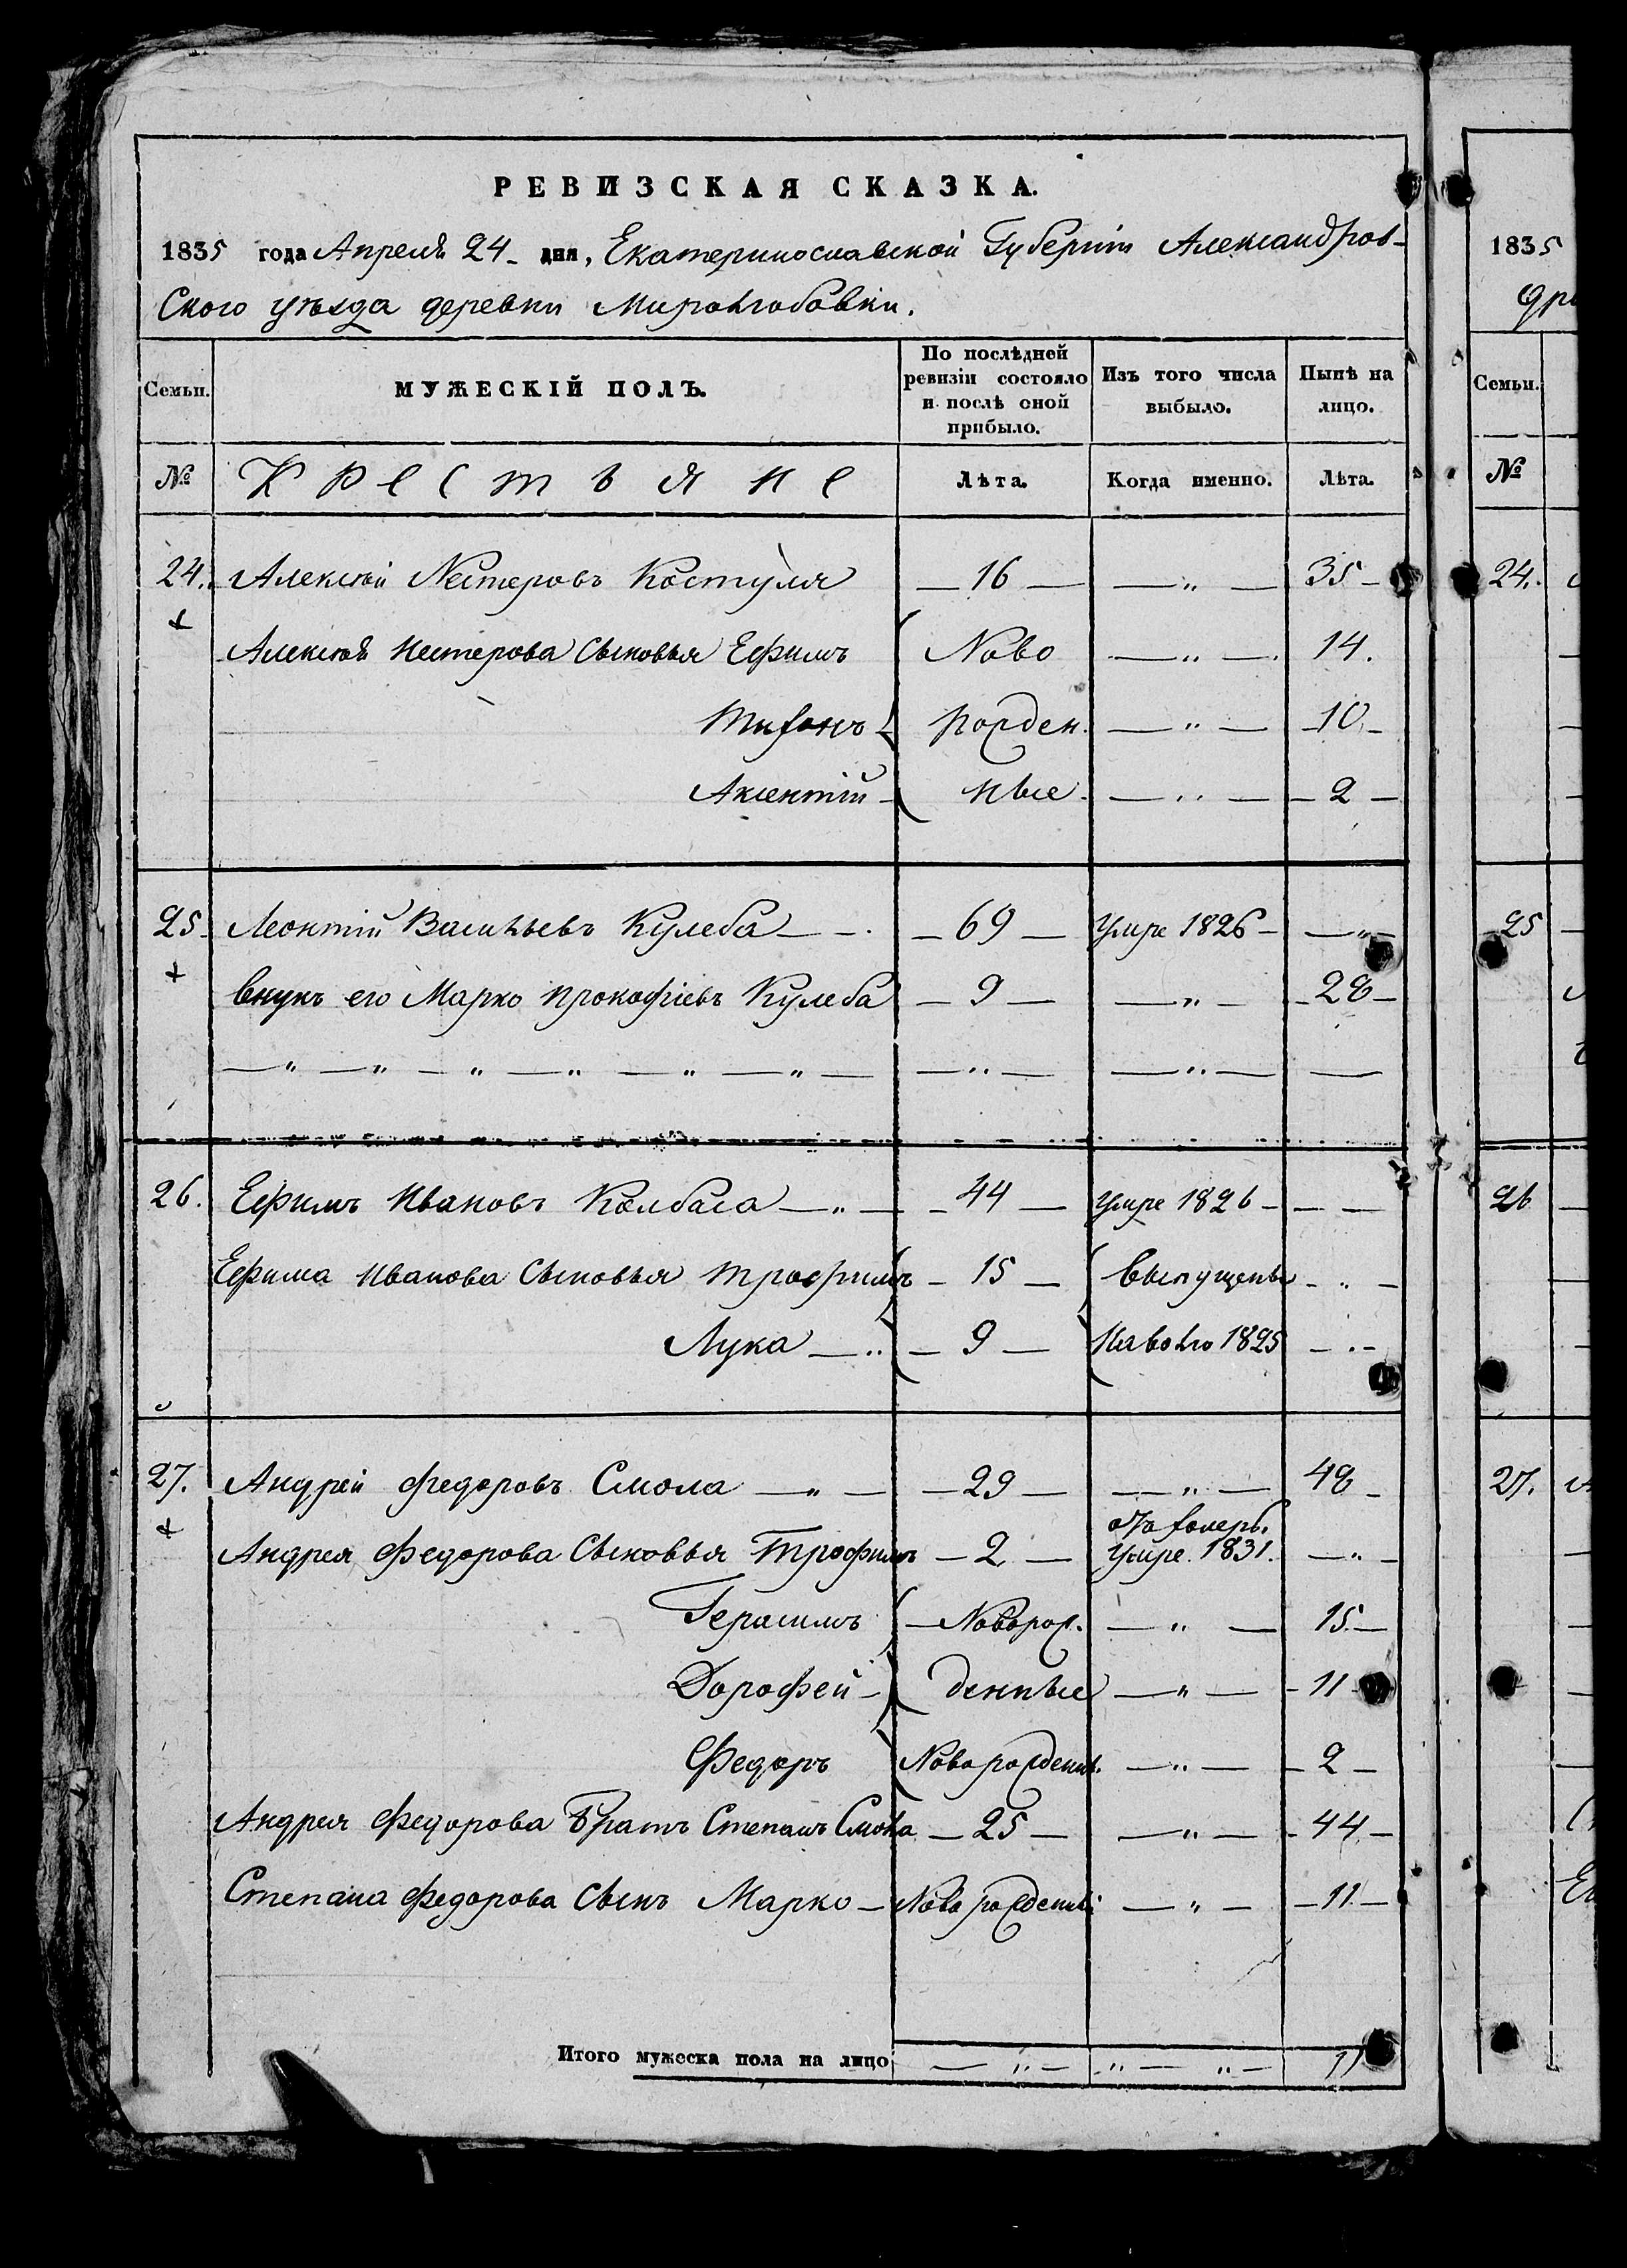 РЕВИЗСКАЯ СКАЗКА.
1835 года Апреля 24 дня, Екатеринославской Губерніи Александров-
ского уѣзда деревни Миролюбовки.
Семьи. МУЖЕСКІЙ ПОЛЪ. По послѣдней ревизіи состояло и послѣ оной прибыло. Изъ того числа выбыло. Нынѣ на лицо.
№ Крестьяне Лѣта. Когда именно. Лѣта.
24. Алексѣй Нестеровъ Костуля — 16 — — „ — 35 —
Алексѣя Нестерова Сыновья Ефимъ Ново — „ — 14.
Тифонъ рожден. — „ — 10 —
Аксентій ные — „ — — 2 —
25. Леонтій Васильевъ Кулеба — 69 — умре 1826 — — „ —
внукъ его Марко Прокофіевъ Кулеба — 9 — — „ — — 28 —
26. Ефимъ Ивановъ Колбаса — „ — — 44 — умре 1826 — — —
Ефима Иванова Сыновья Трофимъ — 15 — выпущены — „ —
Лука — „ — 9 — на волю 1825 — „ —
27. Андрей Федоровъ Смола — „ — — 29 — — „ — 48 —
Андрея Федорова Сыновья Трофимъ — 2 — умре 1831. — „ —
Герасимъ — Наворож. — „ — 15 —
Дорофей — денные — „ — — 11
Федоръ Наворожденн. — „ — — 2 —
Андрея Федорова Братъ Степанъ Смола — 25 — — „ — — 44 —
Степана Федорова Сынъ Марко — Наворожденн. — „ — — 11 —
Итого мужеска пола на лицо — „ — „ — „ —
1835
№
24.
25
26
27.
Семьи.